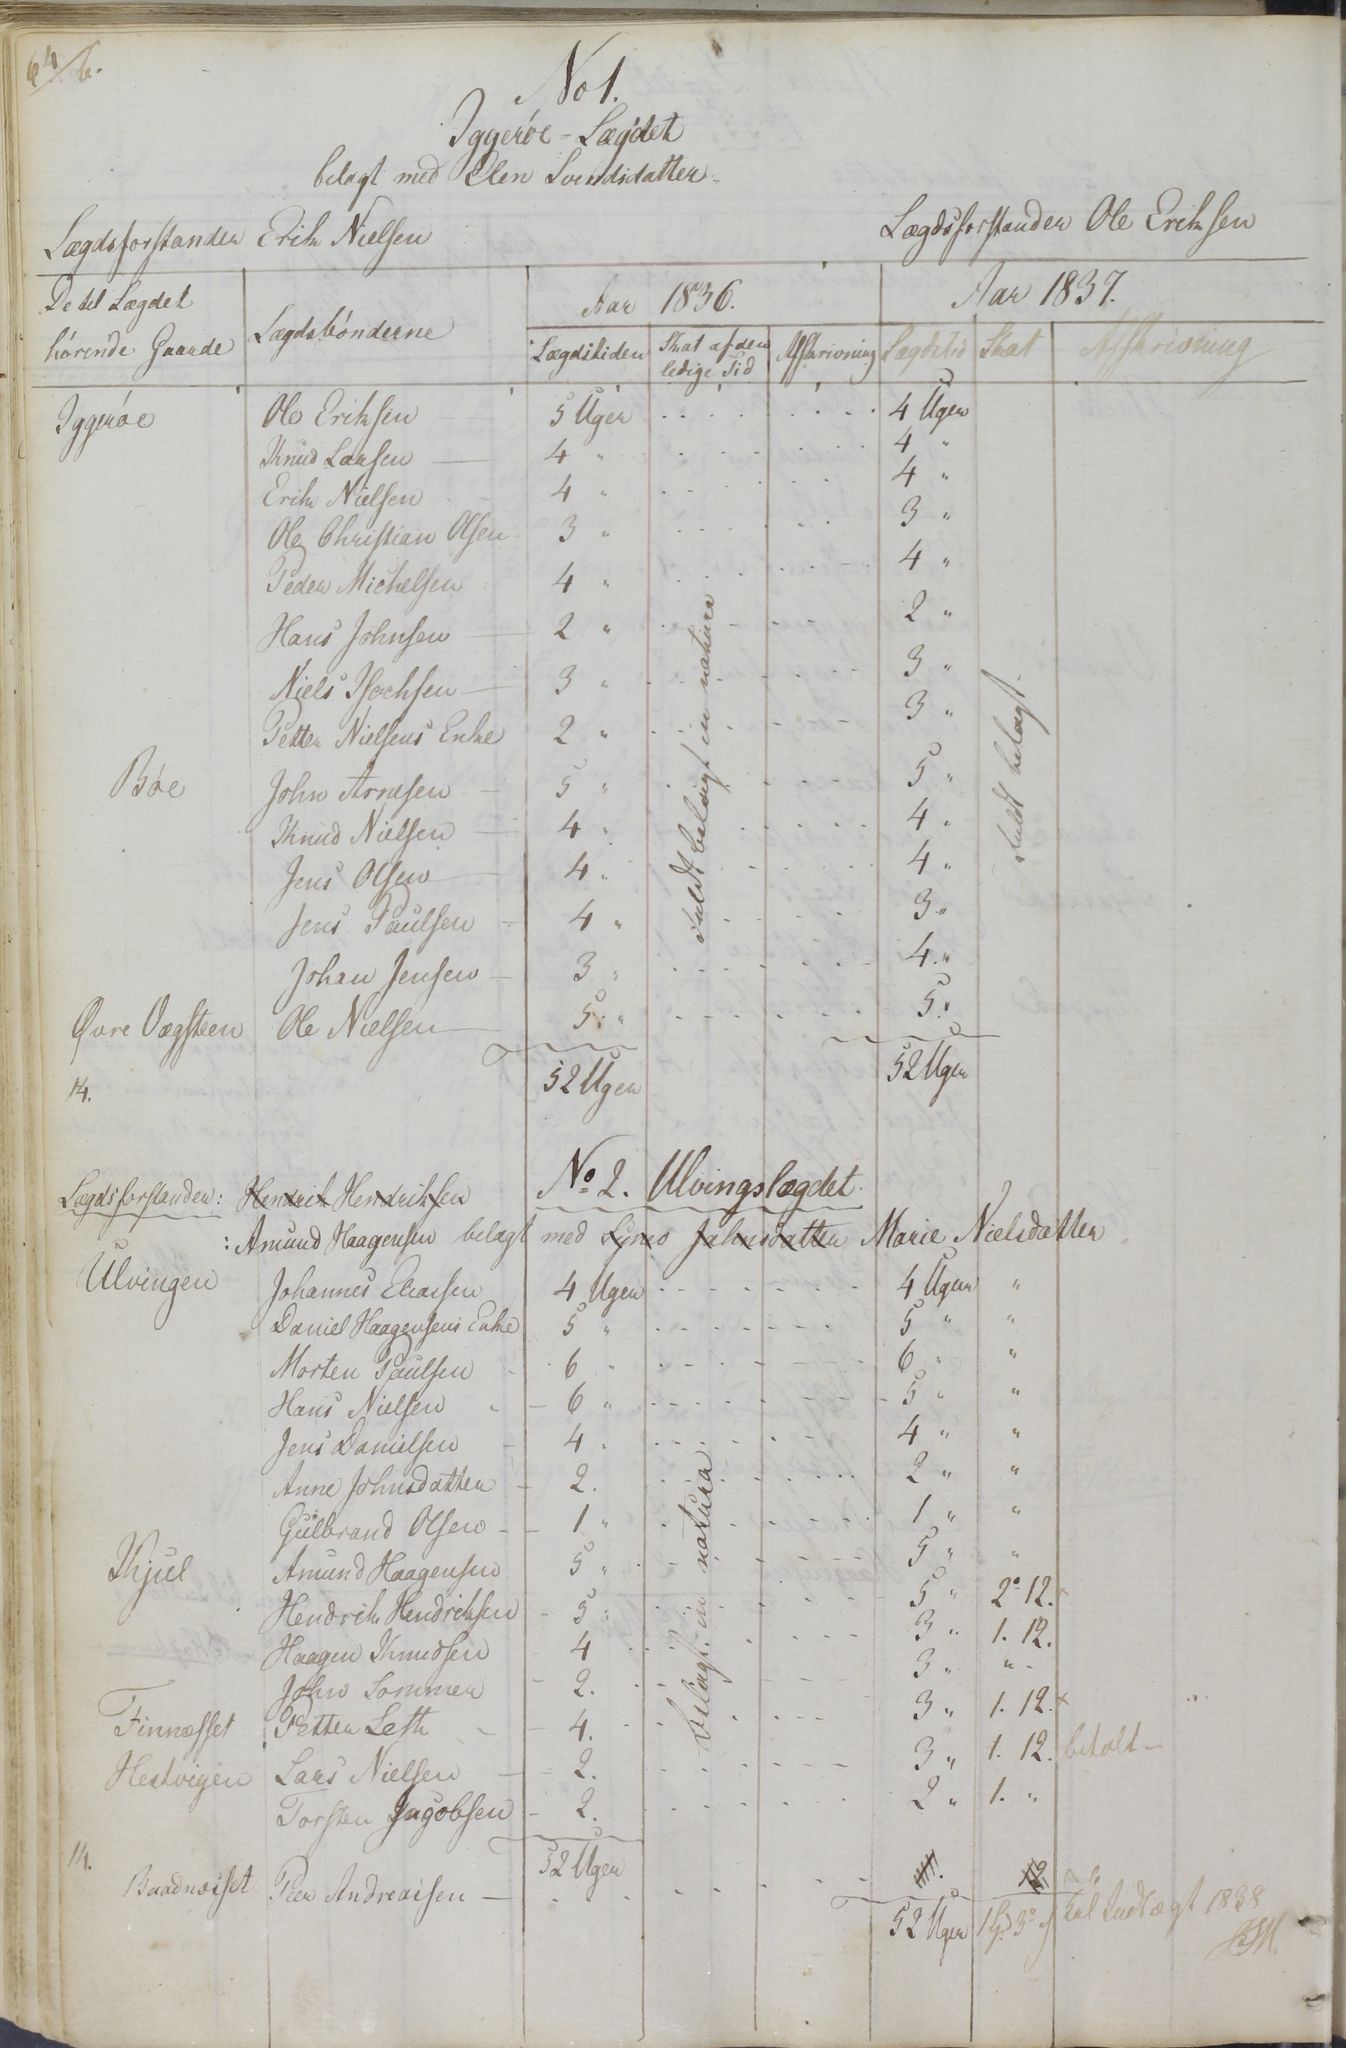 64/b.
No 1.
Iggerøe-Lægdet
belagt med Elen Svendsdatter
Lægdsforstander Erik Nielsen
Lægdsforstander Ole Eriksen
De til Lægdet hørende Gaarde | Lægdsbønderne | Aar 1836. | Aar 1837.
Lægdstiden | Skat af den ledige Tid | Afskrivning | Lægdstid | Skat | Afskrivning
Iggerøe Ole Eriksen 5 Uger 4 Uger
Knud Larsen 4 " 4 "
Erik Nielsen 4 " 4 "
Ole Christian Olsen 3 " 3 "
Peder Michelsen 4 " 4 "
Hans Johnsen 2 " 2 "
Niels Isachsen 3 " 3 "
Petter Nielsens Enke 2 " 3 "
Bøe John Arnesen 5 " 5 "
Knud Nielsen 4 " 4 "
Jens Olsen 4 " 4 "
Jens Paulsen 4 " 3 "
Johan Jensen 3 " 4 "
Øvre Vægsteen Ole Nielsen 5 " 5 "
fuldt belagt in natura
fuldt belagt
14. 52 Uger 52 Uger
No 2. Ulvingslægdet
Lægdsforstander: Hendrik Hendriksen
: Amund Haagensen belagt med Johnsdatter Marie Nielsdatter
Ulvingen Johannes Eliasen 4 Uger 4 Uger "
Daniel Haagensens Enke 5 " 5 " "
Morten Paulsen 6 " 6 " "
Hans Nielsen 6 " 5 " "
Jens Danielsen 4 " 4 " "
Anne Johnsdatter 2. 2 " "
Gulbrand Olsen 1 " 1 " "
Kjul Amund Haagensen 5 " 5 " "
Hendrik Hendriksen 5 " 5 " 2. 12.
Haagen Knudsen 4 3 " 1. 12.
John Sommer 2. 3 " "
Finnæsset Petter Leth 4. 3 " 1. 12.
Hestvigen Lars Nielsen 2. 3 " 1. 12. betalt
Torsten Jagobsen 2. 2 " 1. "
belagt in natura
14. 52 Uger
Baadnæsset Peer Andreasen
52 Uger
Indtægt 1838